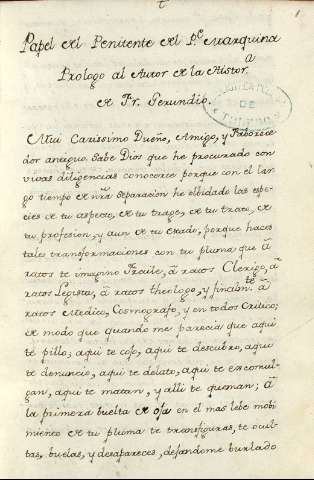 1
Papel del Penitente del P.e Marquina
Prologo al Autor de la Histor.a
de Fr. Gerundio.
DE
TOLEDO
Mui Carissimo Dueño, Amigo, y Faborece
dor antiguo. Sabe Dios que he procurado con
vivas diligencias conocerte porque con el lar
go tiempo de nr̃a separacion he olbidado las espe
cies de tu aspecto, de tu trage, de tu trato, de
tu profesion, y aun de tu estado, porque haces
tales transformaciones con tu pluma que â
ratos te imagino Fraile, â ratos Clerigo, â
ratos Legista, â ratos theologo, y finalm.te â
ratos Medico, Cosmografo, y en todos Critico;
de modo que quando me parecia que aqui
te pillo, aqui te cojo, aqui te descubro, aqui
te denuncio, aqui te delato, aqui te excomul
gan, aqui te matan, y alli te queman; â
la primera buelta de oja en el mas lebe mobi
miento de tu pluma te transfiguras, te ocul
tas, buelas, y desapareces, dejandome burlado